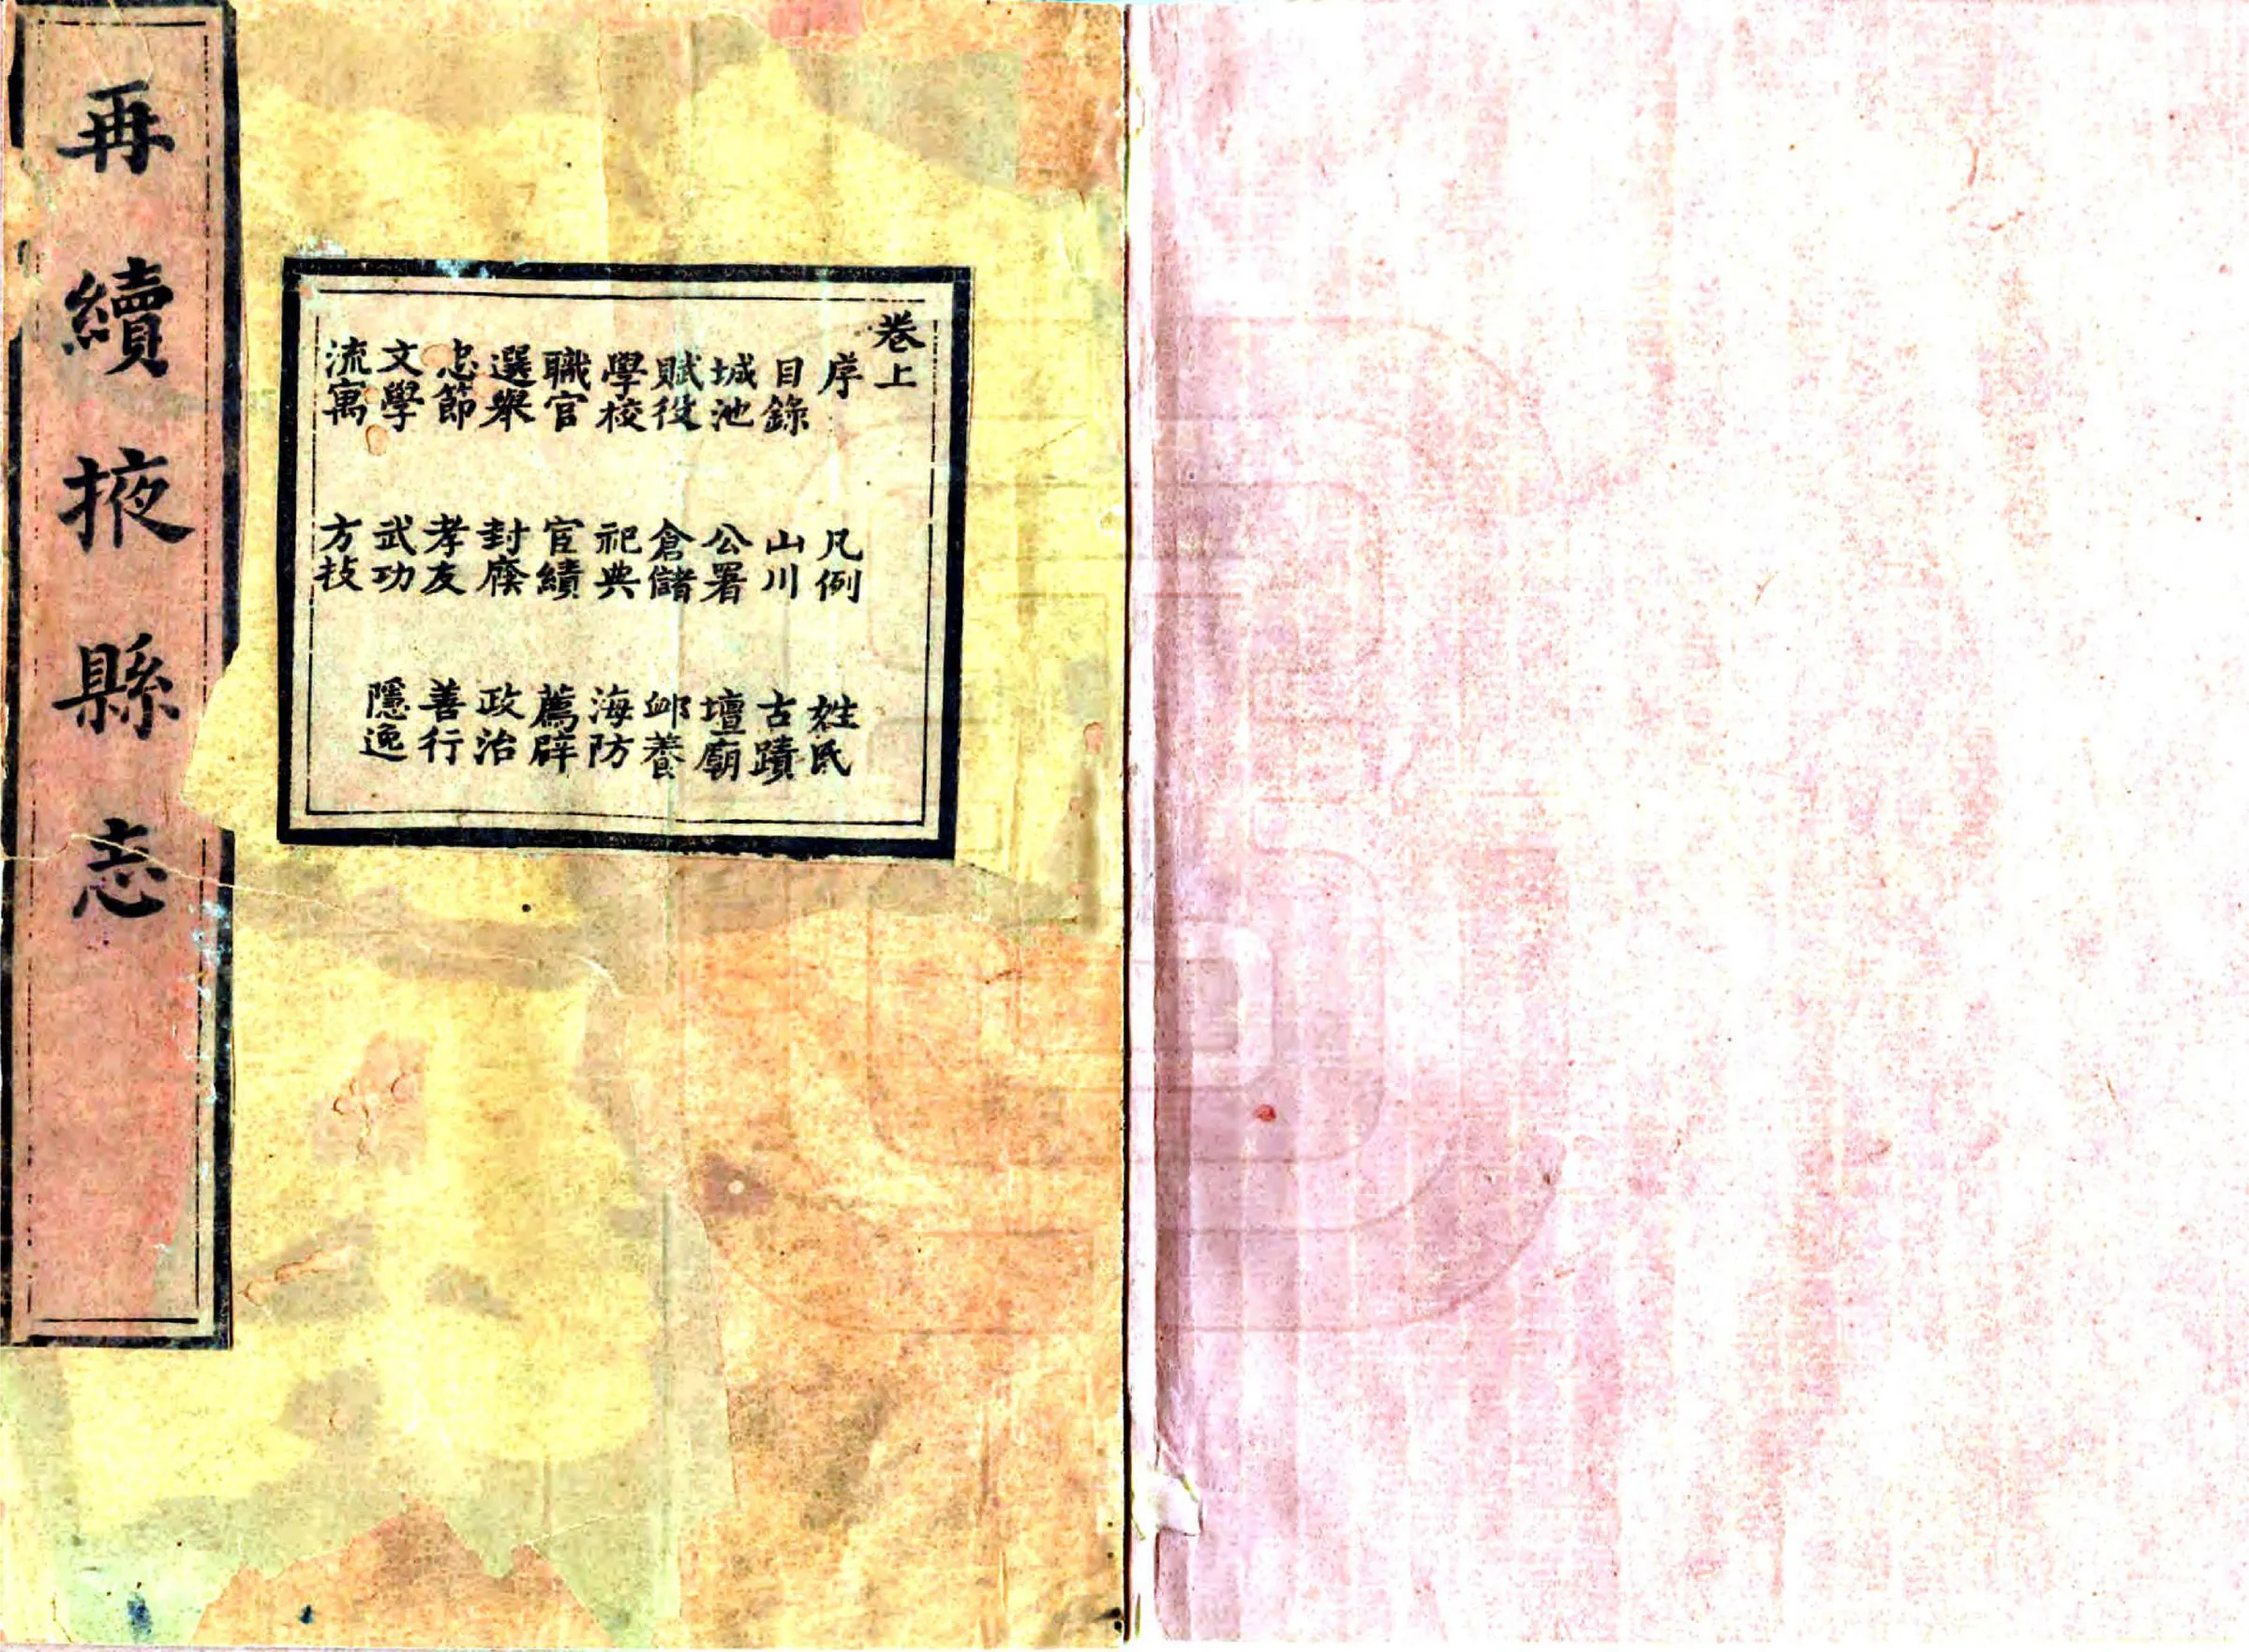 再續掖縣志
卷上
序 凡例 姓氏
目錄 山川 古蹟
城池 公署 壇廟
賦役 倉儲 卹養
學校 祀典 海防
職官 宦績 薦辟
選舉 封廕 政治
忠節 孝友 善行
文學 武功 隱逸
流寓 方技